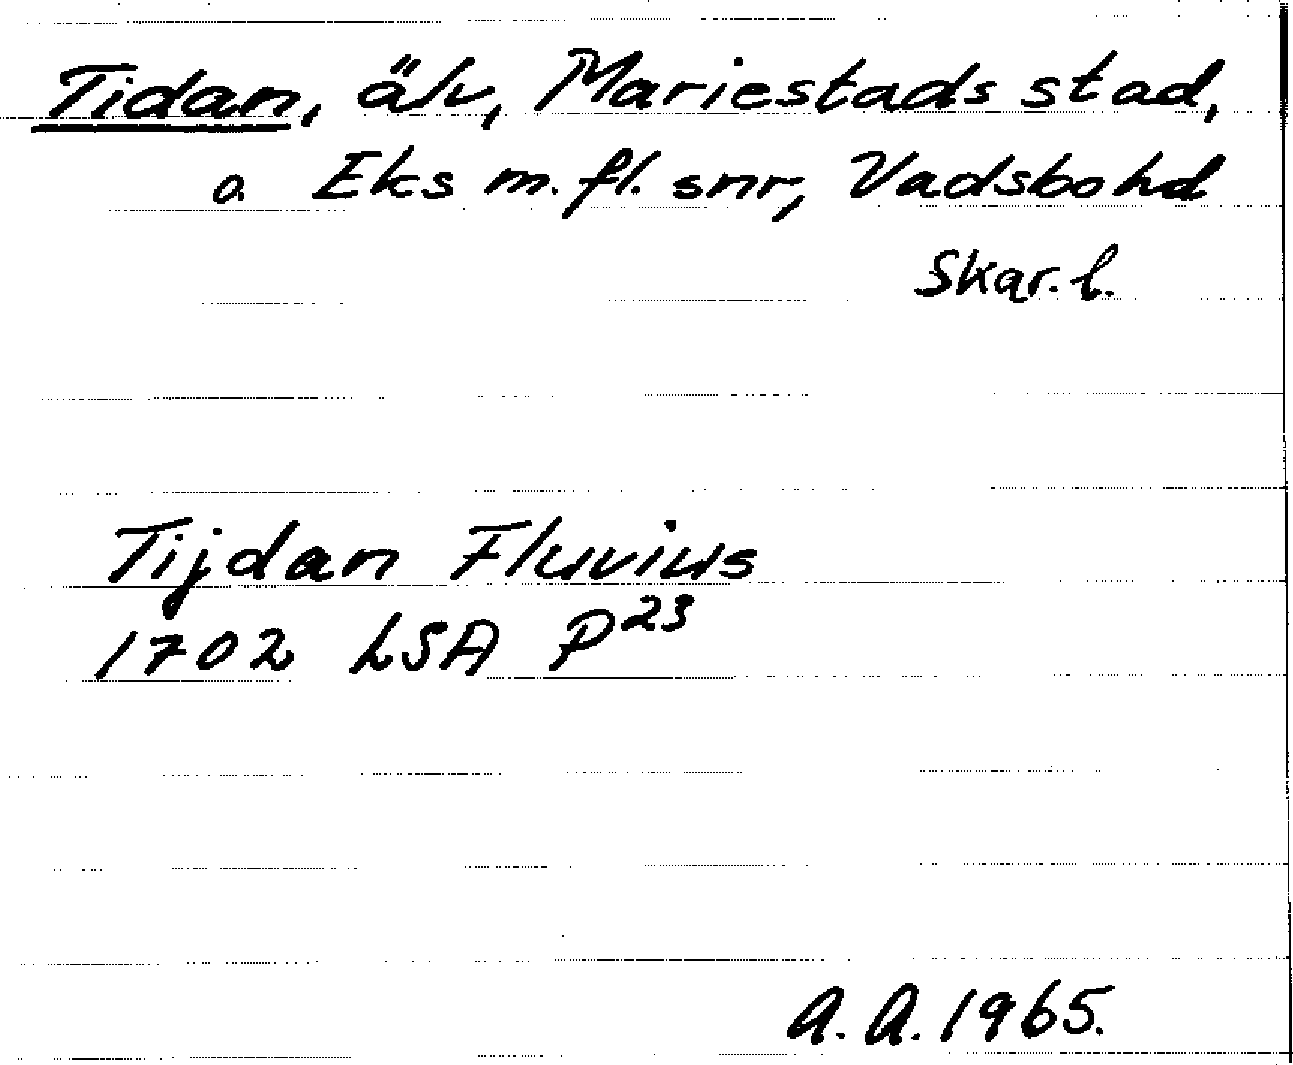 Tidan, älv, Mariestads stad,
a Eks m.fl. snr, Vadsbo hd
Skar. l.
Tijdan Fluvius
1702 LSA P23
A.A. 1965.